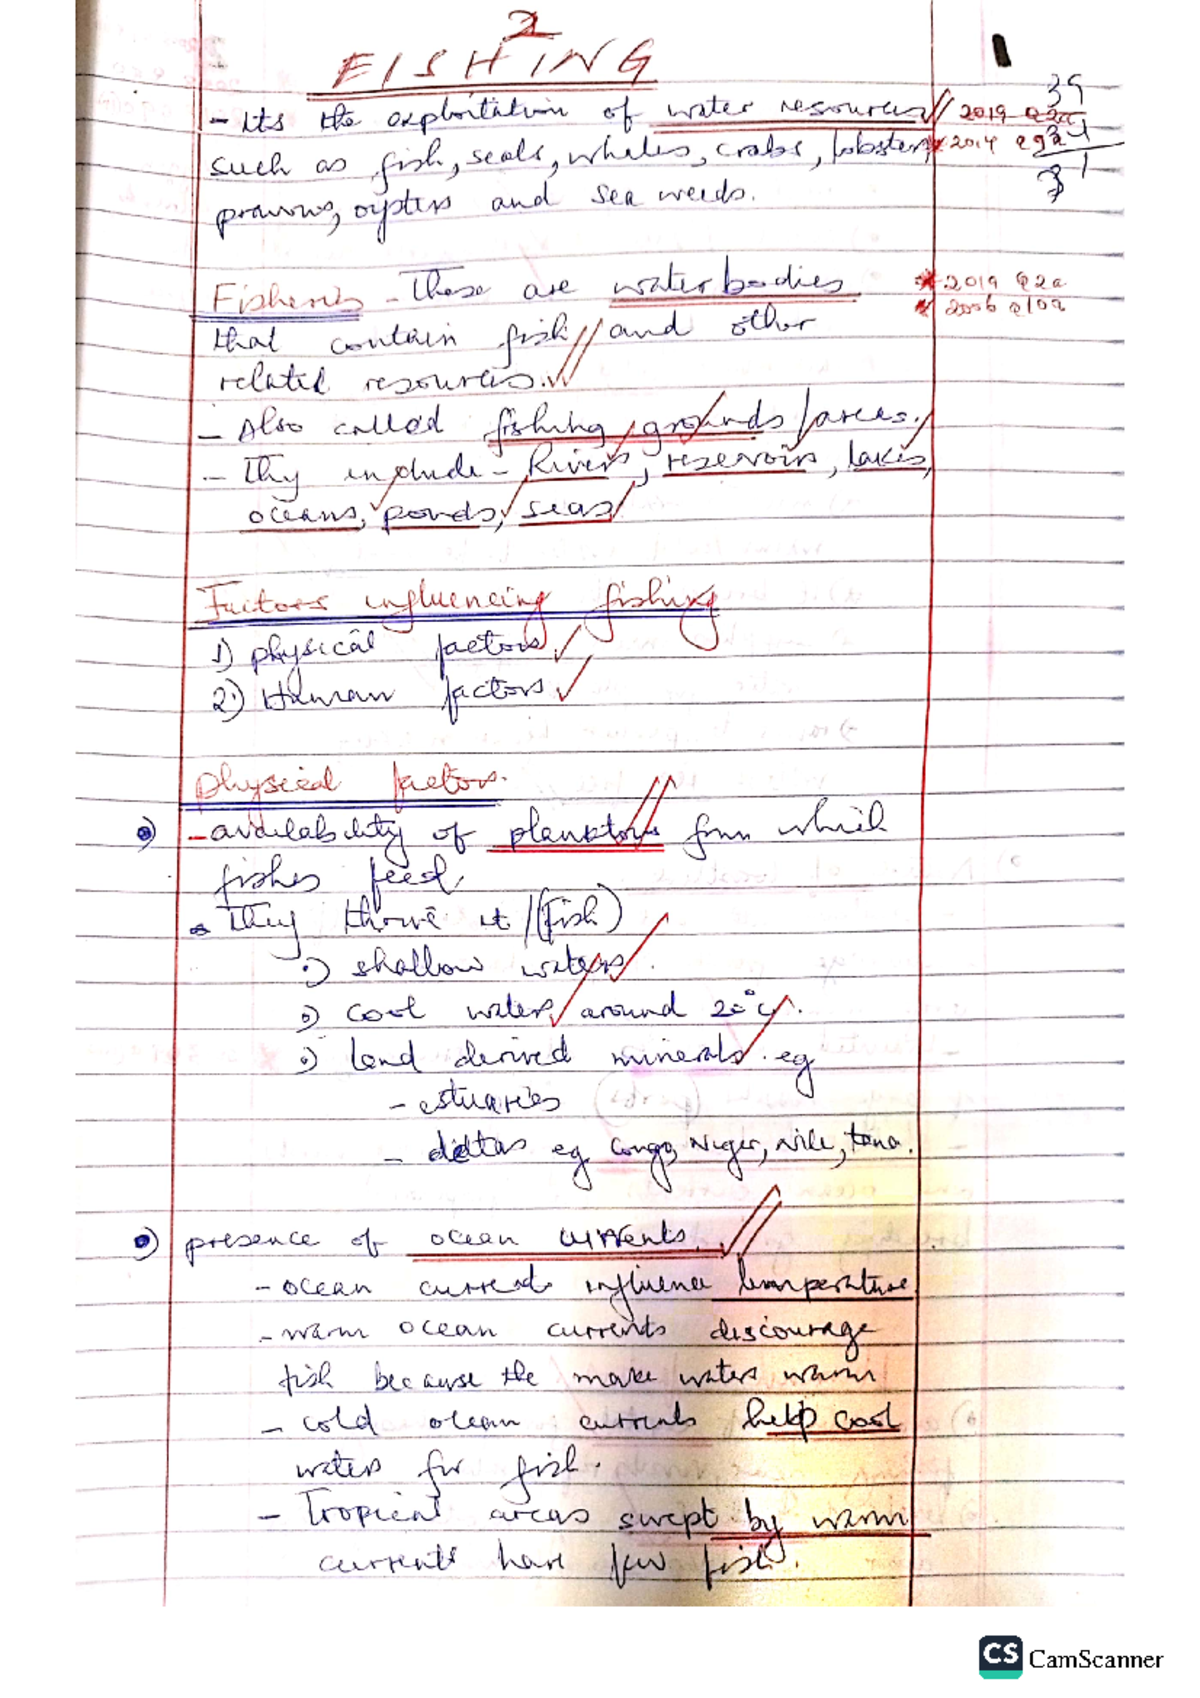 2
FISHING
1
- Its the exploitation of water resources
2019 Q2a
39
such as fish, seals, whales, crabs, lobster,
2014 Q9a
prawns, oysters and sea weeds.
Fisheries - These are waterbodies
2019 Q2a
2006 Q10a
that contain fish and other
related resources.
- Also called fishing grounds/areas.
- Thy include - Rivers, reservoirs, lakes,
oceans, ponds, seas
Factors influencing fishing
1) physical factors
2) Human factors
physical factors.
- availability of planktons from which
fishes feed,
They thrive it /(fish)
shallow waters.
cool waters around 20°c.
land derived minerals. eg
- estuaries
- deltas eg Congo, Niger, Nile, tana.
presence of ocean currents.
- ocean currents influence temperature
- warm ocean currents discourage
fish because the make waters warm
- cold ocean currents help cool
waters for fish.
- Tropical areas swept by warm
currents have few fish.
CS CamScanner